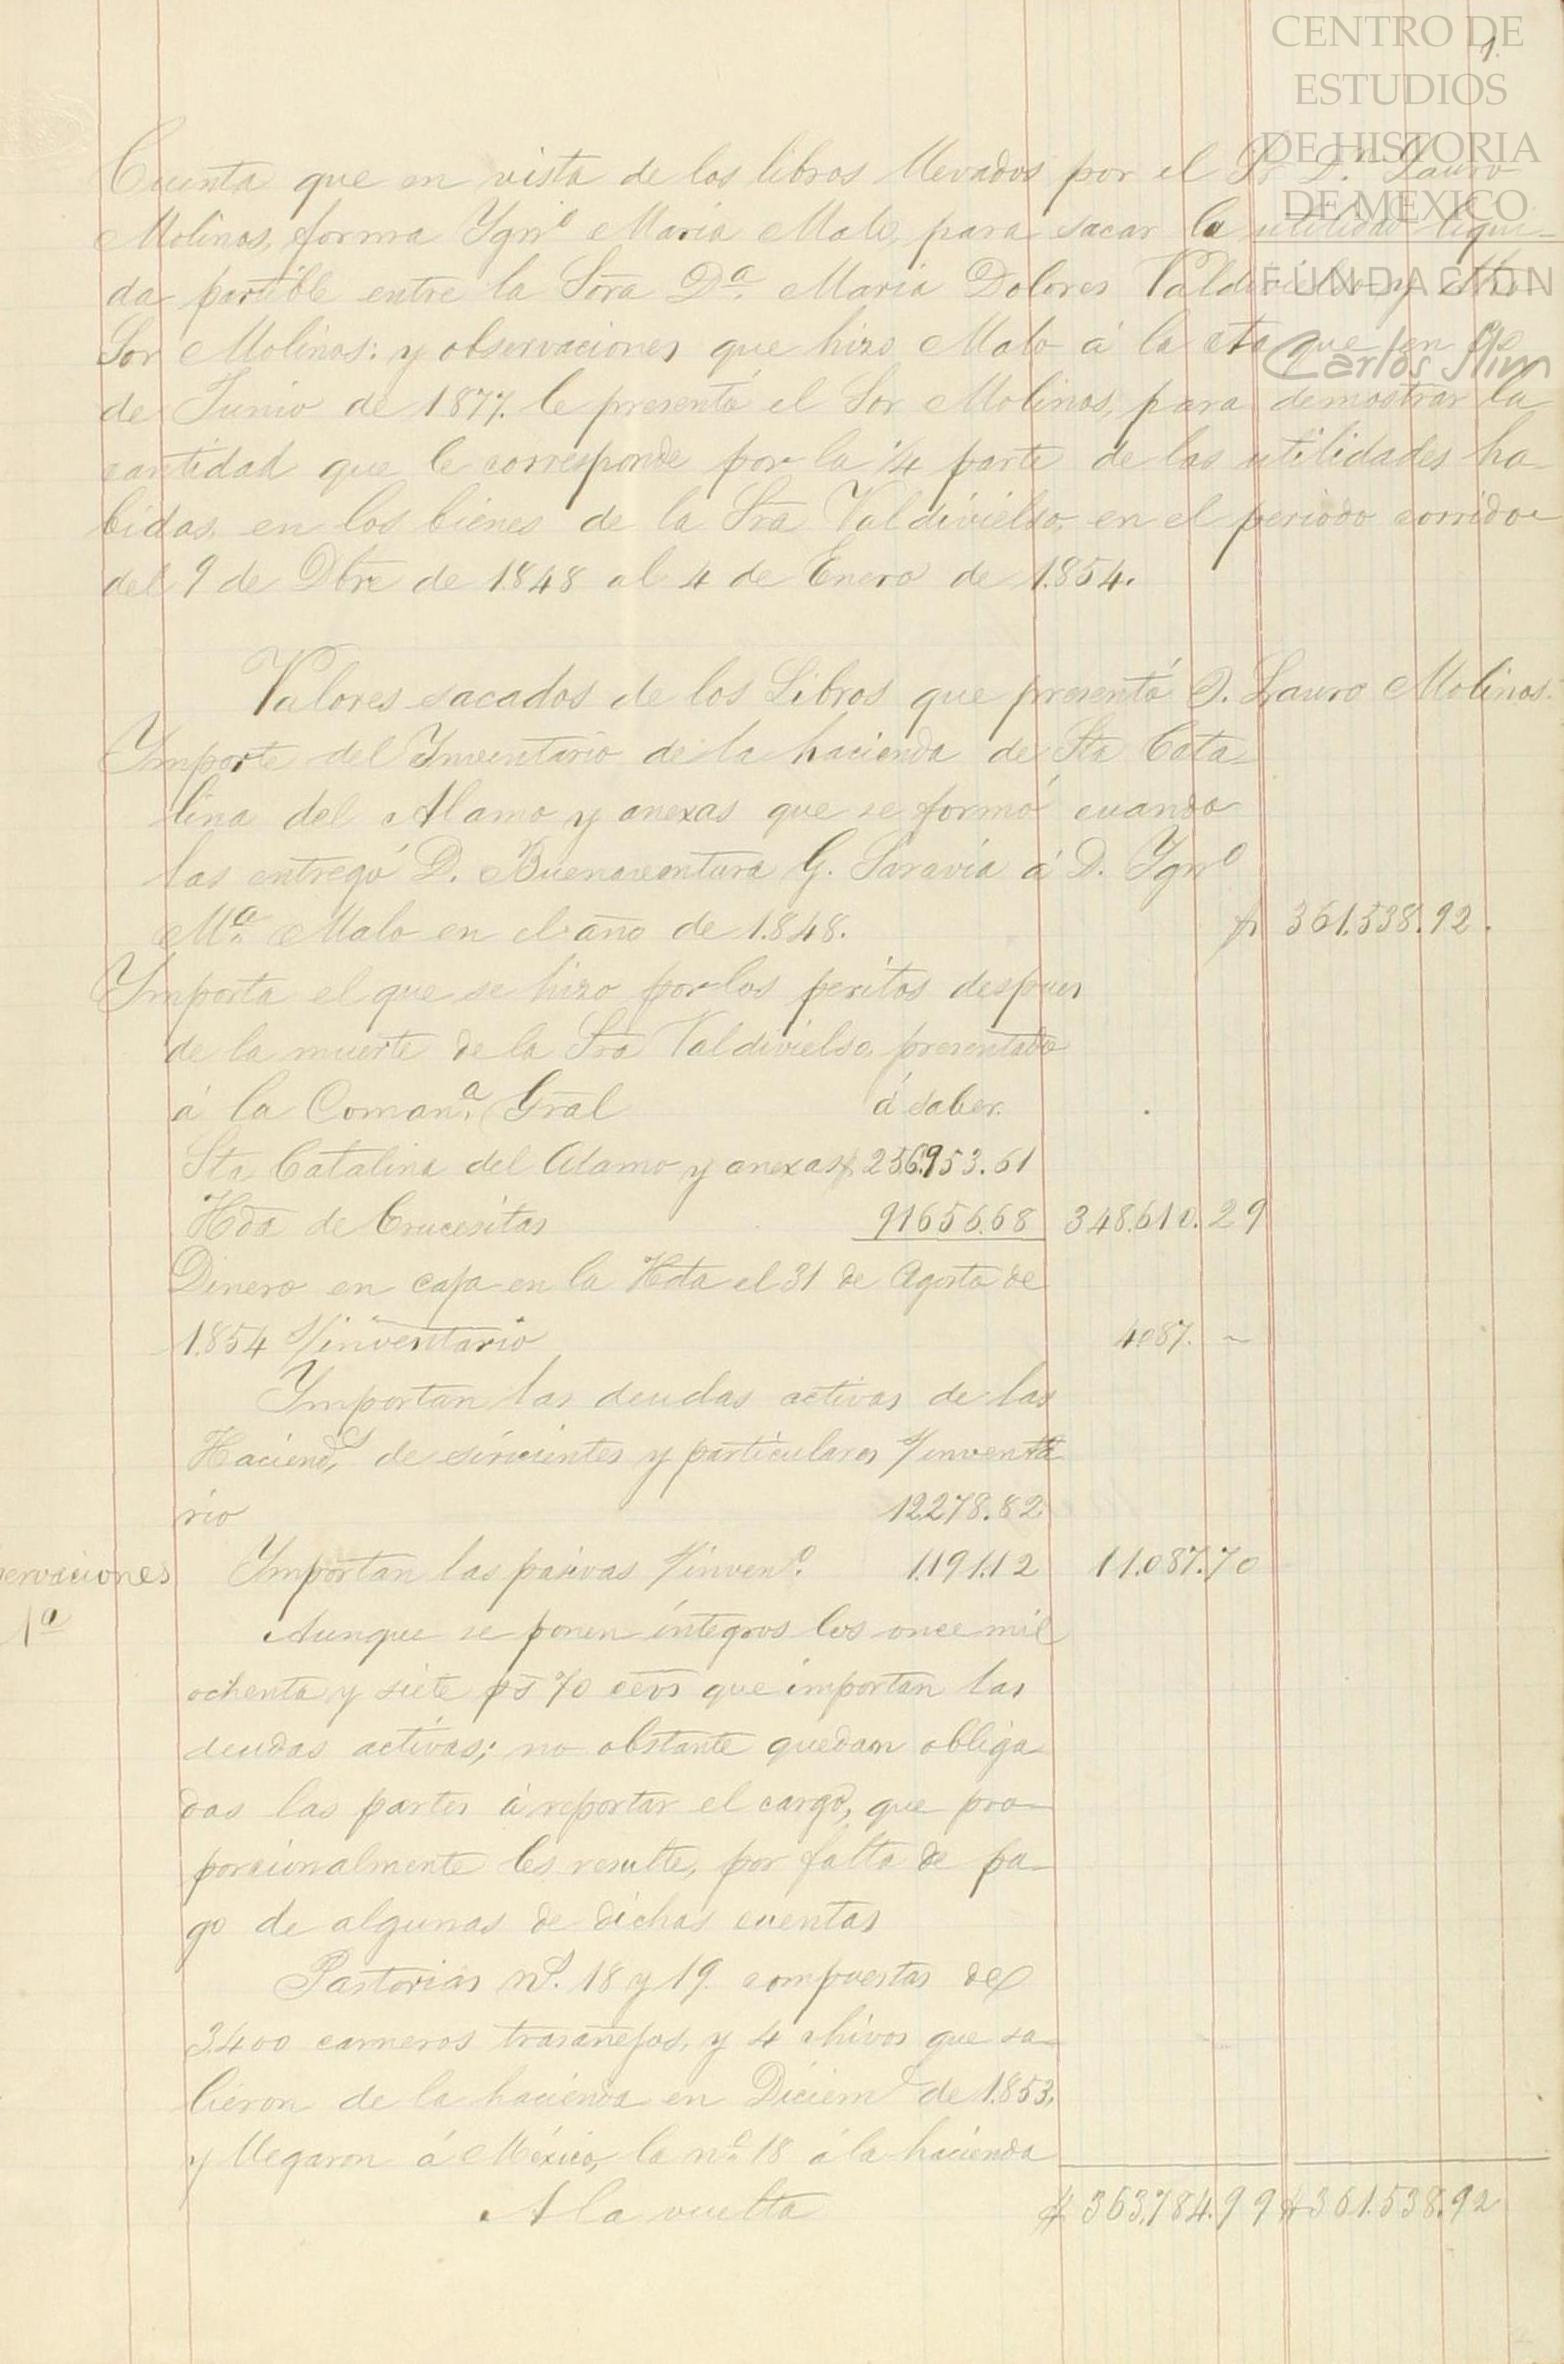 1.
CENTRO DE
ESTUDIOS
DE HISTORIA
DE MEXICO
FUNDACION
Carlos Slim
Cuenta que en vista de los libros llevados por el Sr. Dn. Lauro
Molinos, forma Ygno Maria Malo, para sacar la utilidad liqui-
da partible entre la Sora Da. Maria Dolores Valdivielso y dho
Sor Molinos: y observaciones que hizo Malo á la cta que en
de Junio de 1877. le presentó el Sor Molinos, para demostrar la
cantidad que le corresponde por la 1/4 parte de las utilidades ha-
bidas, en los bienes de la Sra Valdivielso, en el periodo corrido
del 9 de Dbre de 1848 al 4 de Enero de 1.854.
Valores sacados de los Libros que presentó D. Lauro Molinos.
Ymporte del Ynventario de la hacienda de Sta Cata-
lina del Alamo y anexas que se formó cuando
las entregó D. Buenaventura G. Saravia á D. Ygno
Ma. Malo en el año de 1.848. $ 361.538.92.
Ymporta el que se hizo por los peritos despues
de la muerte de la Sra Valdivielso, presentado
á la Coman.a Gral á saber.
Sta Catalina del Alamo y anexas $ 256.953.61
Hda de Crucesitas 91656.68 348.610.29
Dinero en caja en la Hda el 31 de Agosto de
1.854 s/inventario 4087. ~
Ymportan las deudas activas de las
Haciend.s de sirvientes y particulares s/inventa
rio 12.278.82
Ymportan las pasivas s/inven.o 1.191.12 11.087.70
ervaciones
1a
Aunque se ponen íntegros los once mil
ochenta y siete ps 70 cevs que importan las
deudas activas; no obstante quedan obliga-
das las partes á reportar el cargo, que pro-
porcionalmente les resulte, por falta de pa-
go de algunas de dichas cuentas
Pastorias ns. 18 y 19. compuestas de
3.400 carneros trasañejos, y 4 chivos que sa-
lieron de la hacienda en Diciem.e de 1.853,
y llegaron á México, la no. 18 á la hacienda
A la vuelta $ 363.784.99 $ 361.538.92